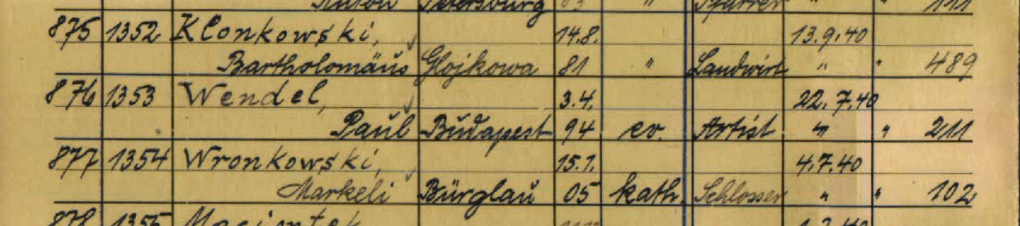 Anton Petersburg 03 " Pfarrer " " 111
875 1352 Klonkowski, 14.8. 13.9.40
Bartholomäus Glojkowa 81 " Landwirt " " 489
876 1353 Wendel, 3.4. 22.7.40
Paul Budapest 94 ev. Artist " " 211
877 1354 Wronkowski, 15.1. 4.7.40
Markeli Bürglau 05 kath. Schlosser " " 102
878 1355